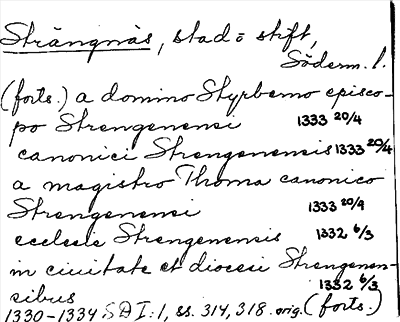 Strängnäs, stad o stift,
Söderm. l.
(forts.) a domino Styrbemo episco-
po Strengenensi 1333 20/4
canonici Strengenensis 1333 20/4
a magistro Thoma canonico
Strengenensi 1333 20/9
ecclesie Strengenensis 1332 6/3
in ciuitate et diocesi Strengenen-
sibus 1332 6/3
1330-1334 SDI:1, ss. 314, 318. orig. (forts.)